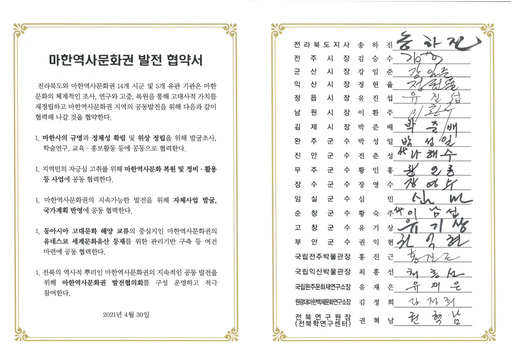 마한역사문화권 발전 협약서
전라북도와 마한역사문화권 14개 시군 및 5개 유관 기관은 마한
문화의 체계적인 조사, 연구와 고증, 복원을 통해 고대사적 가치를
재정립하고 마한역사문화권 지역의 공동발전을 위해 다음과 같이
협력해 나갈 것을 협약한다.
1. 마한사의 규명과 정체성 확립 및 위상 정립을 위해 발굴조사,
학술연구, 교육·홍보활동 등에 공동으로 협력한다.
1. 지역민의 자긍심 고취를 위해 마한역사문화 복원 및 정비·활용
등 사업에 공동 협력한다.
1. 마한역사문화권의 지속가능한 발전을 위해 지역사업 발굴,
국가계획 반영에 공동 협력한다.
1. 동아시아 고대문화 해양 교류의 중심지인 마한역사문화권의
유네스코 세계문화유산 등재를 위한 관리기반 구축 등 여건
마련에 공동 협력한다.
1. 전북의 역사적 뿌리인 마한역사문화권의 지속적인 공동 발전을
위해 마한역사문화권 발전협의회를 구성 운영하고 적극
참여한다.
2021년 4월 30일
전라북도지사 송하진 송하진
전주시장 김승수
군산시장 강임준
익산시장 정헌율
정읍시장 유진섭 유진섭
남원시장 이환주 이환주
김제시장 박준배 박준배
완주군수 박성일 박성일
진안군수 전춘성
무주군수 황인홍
장수군수 장영수 장영수
임실군수 심민 심민
순창군수 황숙주
고창군수 유기상 유기상
부안군수 권익현 권익현
국립전주박물관장 홍진근 홍진근
국립익산박물관장 최흥선 최흥선
국립완주문화재연구소장 유재은 유재은
원광대마한백제문화연구소장 김정희 김정희
전북연구원장
(전북학연구센터) 권혁남 권혁남